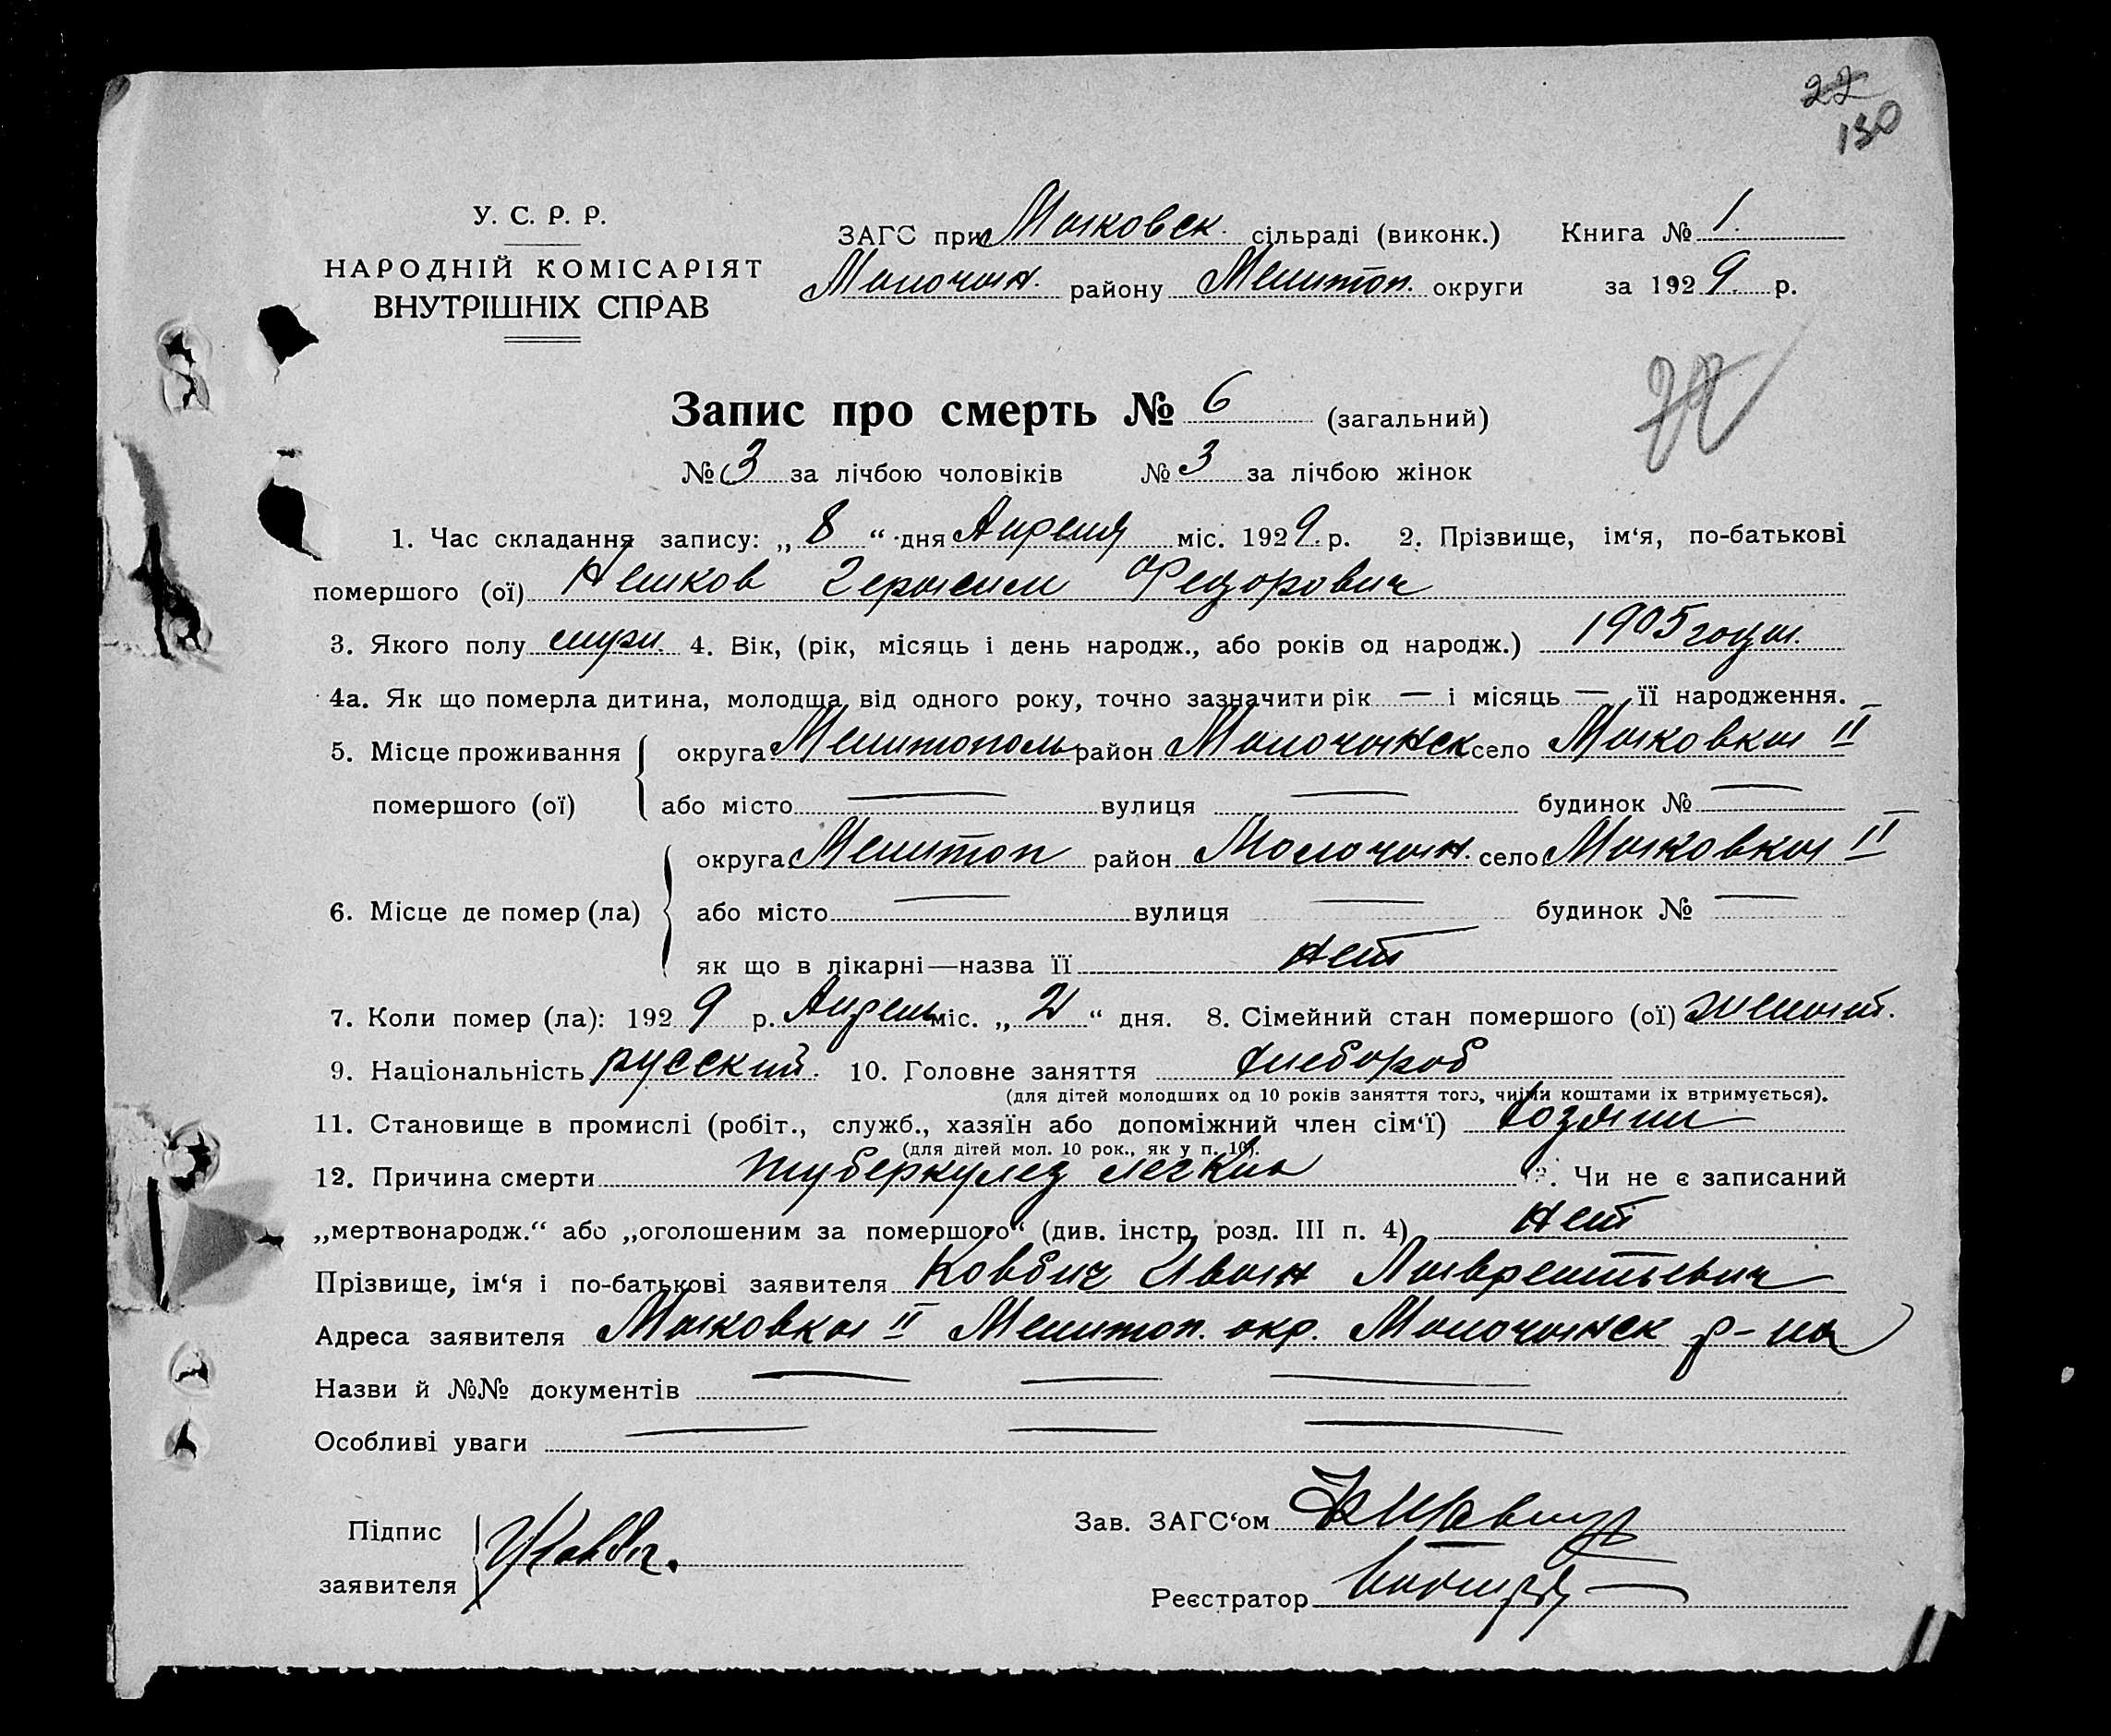 22
130
У. С. Р. Р.
НАРОДНІЙ КОМІСАРІЯТ
ВНУТРІШНІХ СПРАВ
ЗАГС при Маковск. сільраді (виконк.) Книга № 1.
Молочан. району Мелитоп. округи за 1929 р.
Запис про смерть № 6 (загальний)
№ 3 за лічбою чоловіків № 3 за лічбою жінок
1. Час складання запису: „8“ дня Апреля міс. 1929. р. 2. Прізвище, ім‘я, по-батькові
помершого (ої) Герасим Федорович
3. Якого полу 4. Вік, (рік, місяць і день народж., або років од народж.) 1905 года.
4а. Як що померла дитина, молодща від одного року, точно зазначити рік — і місяць — її народження.
5. Місце проживання округа Мелитополь район Молочанск село Маковка II
помершого (ої) або місто — вулиця — будинок № —
округа Мелитоп район Молочан. село Маковка II
6. Місце де помер (ла) або місто — вулиця — будинок № —
як що в лікарні—назва її нет
7. Коли помер (ла): 1929 р. Апрель міс. „2“ дня. 8. Сімейний стан помершого (ої) женат.
9. Національність русский. 10. Головне заняття хлебороб
(для дітей молодших од 10 років заняття того, чиїми коштами їх втримується).
11. Становище в промислі (робіт., служб., хазяїн або допоміжний член сім‘ї) Хозяин
(для дітей мол. 10 рок., як у п. 10).
12. Причина смерти туберкулез легких . Чи не є записаний
„мертвонародж.“ або „оголошеним за помершого“ (див. інстр. розд. III п. 4) нет
Прізвище, ім‘я і по-батькові заявителя Ковбич Иван Лаврентьевич
Адреса заявителя Маковка II Мелитоп. окр. Молочанск р-на
Назви й №№ документів — — —
Особливі уваги — — —
Підпис
заявителя
Зав. ЗАГС‘ом
Реєстратор